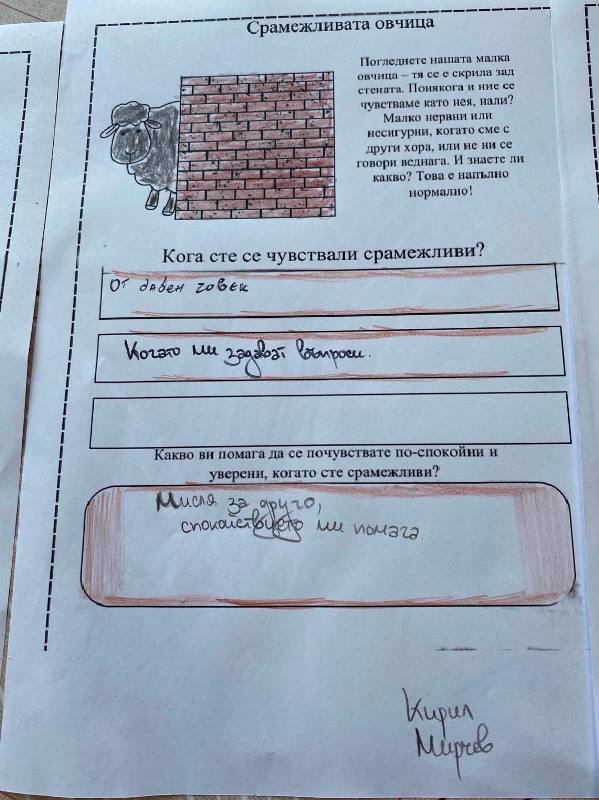 Срамежливата овчица
Погледнете нашата малка
овчица – тя се е скрила зад
стената. Понякога и ние се
чувстваме като нея, нали?
Малко нервни или
несигурни, когато сме с
други хора, или не ни се
говори веднага. И знаете ли
какво? Това е напълно
нормално!
Кога сте се чувствали срамежливи?
От човек
Когато ми задават въпроси.
Какво ви помага да се почувствате по-спокойни и
уверени, когато сте срамежливи?
Мисля за друго,
спокойствието ми помага.
Кирил
Мирчев